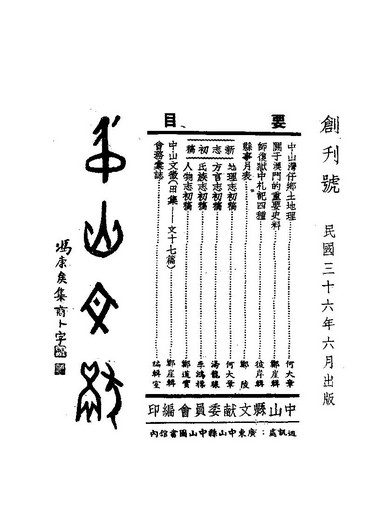 創刊號
民國三十六年六月出版
要目
中山灣仔鄉土地理……何大章
關于澳門的重要史料……鄭崖輯
師復獄中札記四種……彼岸輯
縣事月表……鄭陵
新志初稿
地理志初稿……何大章
方言志初稿……湯龍驤
氏族志初稿……李鴻標
人物志初稿……鄭道實
中山文徵(田集——文十七篇)……鄭崖輯
會務彙誌……編輯室
中山縣文献委員會編印
通訊處：廣東中山縣中山圖書館內
中山文獻
馮康侯集商卜字